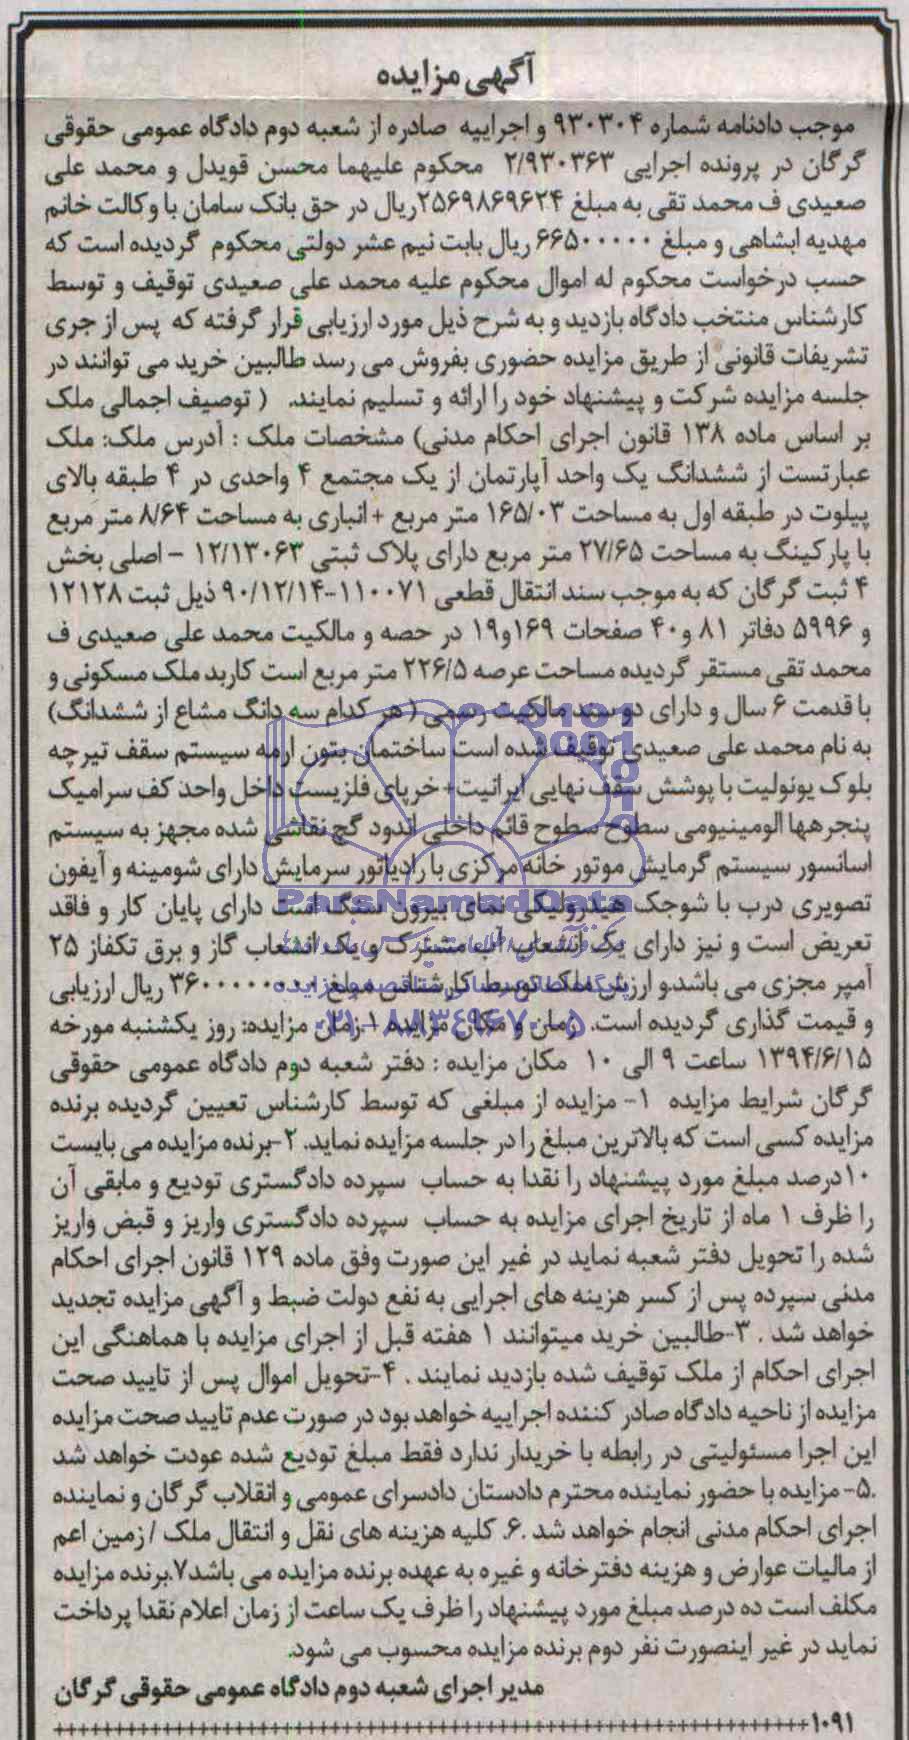 آگهی مزایده
موجب دادنامه شماره ۹۳۰۳۰۴ و اجراییه صادره از شعبه دوم دادگاه عمومی حقوقی
گرگان در پرونده اجرایی ۲/۹۳۰۳۶۳ محکوم علیهما محسن قویدل و محمد علی
صعیدی ف محمد تقی به مبلغ ۲۵۶۹۸۶۹۶۲۴ریال در حق بانک سامان با وکالت خانم
مهدیه ابشاهی و مبلغ ۶۶۵۰۰۰۰۰ ریال بابت نیم عشر دولتی محکوم گردیده است که
حسب درخواست محکوم له اموال محکوم علیه محمد علی صعیدی توقیف و توسط
کارشناس منتخب دادگاه بازدید و به شرح ذیل مورد ارزیابی قرار گرفته که پس از جری
تشریفات قانونی از طریق مزایده حضوری بفروش می رسد طالبین خرید می توانند در
جلسه مزایده شرکت و پیشنهاد خود را ارائه و تسلیم نمایند. ( توصیف اجمالی ملک
بر اساس ماده ۱۳۸ قانون اجرای احکام مدنی) مشخصات ملک : آدرس ملک: ملک
عبارتست از ششدانگ یک واحد آپارتمان از یک مجتمع ۴ واحدی در ۴ طبقه بالای
پیلوت در طبقه اول به مساحت ۱۶۵/۰۳ متر مربع +انباری به مساحت ۸/۶۴ متر مربع
با پارکینگ به مساحت ۲۷/۶۵ متر مربع دارای پلاک ثبتی ۱۲/۱۳۰۶۳ - اصلی بخش
۴ ثبت گرگان که به موجب سند انتقال قطعی ۱۱۰۰۷۱-۹۰/۱۲/۱۴ ذیل ثبت ۱۲۱۲۸
و ۵۹۹۶ دفاتر ۸۱ و۴۰ صفحات ۱۶۹و۱۹ در حصه و مالکیت محمد علی صعیدی ف
محمد تقی مستقر گردیده مساحت عرصه ۲۲۶/۵ متر مربع است کاربد ملک مسکونی و
با قدمت ۶ سال و دارای دو سند مالکیت رسمی ( هر کدام سه دانگ مشاع از ششدانگ)
به نام محمد علی صعیدی توقیف شده است ساختمان بتون ارمه سیستم سقف تیرچه
بلوک یونولیت با پوشش سقف نهایی ایرانیت+ خرپای فلزیست داخل واحد کف سرامیک
پنجرهها الومینیومی سطوح سطوح قائم داخلی اندود گچ نقاشی شده مجهز به سیستم
اسانسور سیستم گرمایش موتور خانه مرکزی با رادیاتور سرمایش دارای شومینه و آیفون
ParsNamadData
تصویری درب با شوجک هیدرولیکی نمای بیرون سنگ است دارای پایان کار و فاقد
تعریض است و نیز دارای یک انشعاب آب مشترک و یک انشعاب گاز و برق تکفاز ۲۵
آمپر مجزی می باشد.و ارزش ملک توسط کارشناس مبلغ ۳۶۰۰۰۰۰۰۰۰ ریال ارزیابی
و قیمت گذاری گردیده است. زمان و مکان مزایده ۱.زمان مزایده: روز یکشنبه مورخه
۰۲۱-۸۸۳۴۹۶۷۰-۵
۱۳۹۴/۶/۱۵ ساعت ۹ الی ۱۰ مکان مزایده : دفتر شعبه دوم دادگاه عمومی حقوقی
گرگان شرایط مزایده ۱- مزایده از مبلغی که توسط کارشناس تعیین گردیده برنده
مزایده کسی است که بالاترین مبلغ را در جلسه مزایده نماید. ۲-برنده مزایده می بایست
۱۰درصد مبلغ مورد پیشنهاد را نقدا به حساب سپرده دادگستری تودیع و مابقی آن
را ظرف ۱ ماه از تاریخ اجرای مزایده به حساب سپرده دادگستری واریز و قبض واریز
شده را تحویل دفتر شعبه نماید در غیر این صورت وفق ماده ۱۲۹ قانون اجرای احکام
مدنی سپرده پس از کسر هزینه های اجرایی به نفع دولت ضبط و آگهی مزایده تجدید
خواهد شد . ۳-طالبین خرید میتوانند ۱ هفته قبل از اجرای مزایده با هماهنگی این
اجرای احکام از ملک توقیف شده بازدید نمایند . ۴-تحویل اموال پس از تایید صحت
مزایده از ناحیه دادگاه صادر کننده اجراییه خواهد بود در صورت عدم تایید صحت مزایده
این اجرا مسئولیتی در رابطه با خریدار ندارد فقط مبلغ تودیع شده عودت خواهد شد
.۵- مزایده با حضور نماینده محترم دادستان دادسرای عمومی و انقلاب گرگان و نماینده
اجرای احکام مدنی انجام خواهد شد .۶. کلیه هزینه های نقل و انتقال ملک / زمین اعم
از مالیات عوارض و هزینه دفترخانه و غیره به عهده برنده مزایده می باشد۷.برنده مزایده
مکلف است ده درصد مبلغ مورد پیشنهاد را ظرف یک ساعت از زمان اعلام نقدا پرداخت
نماید در غیر اینصورت نفر دوم برنده مزایده محسوب می شود.
مدیر اجرای شعبه دوم دادگاه عمومی حقوقی گرگان
۱۰۹۱